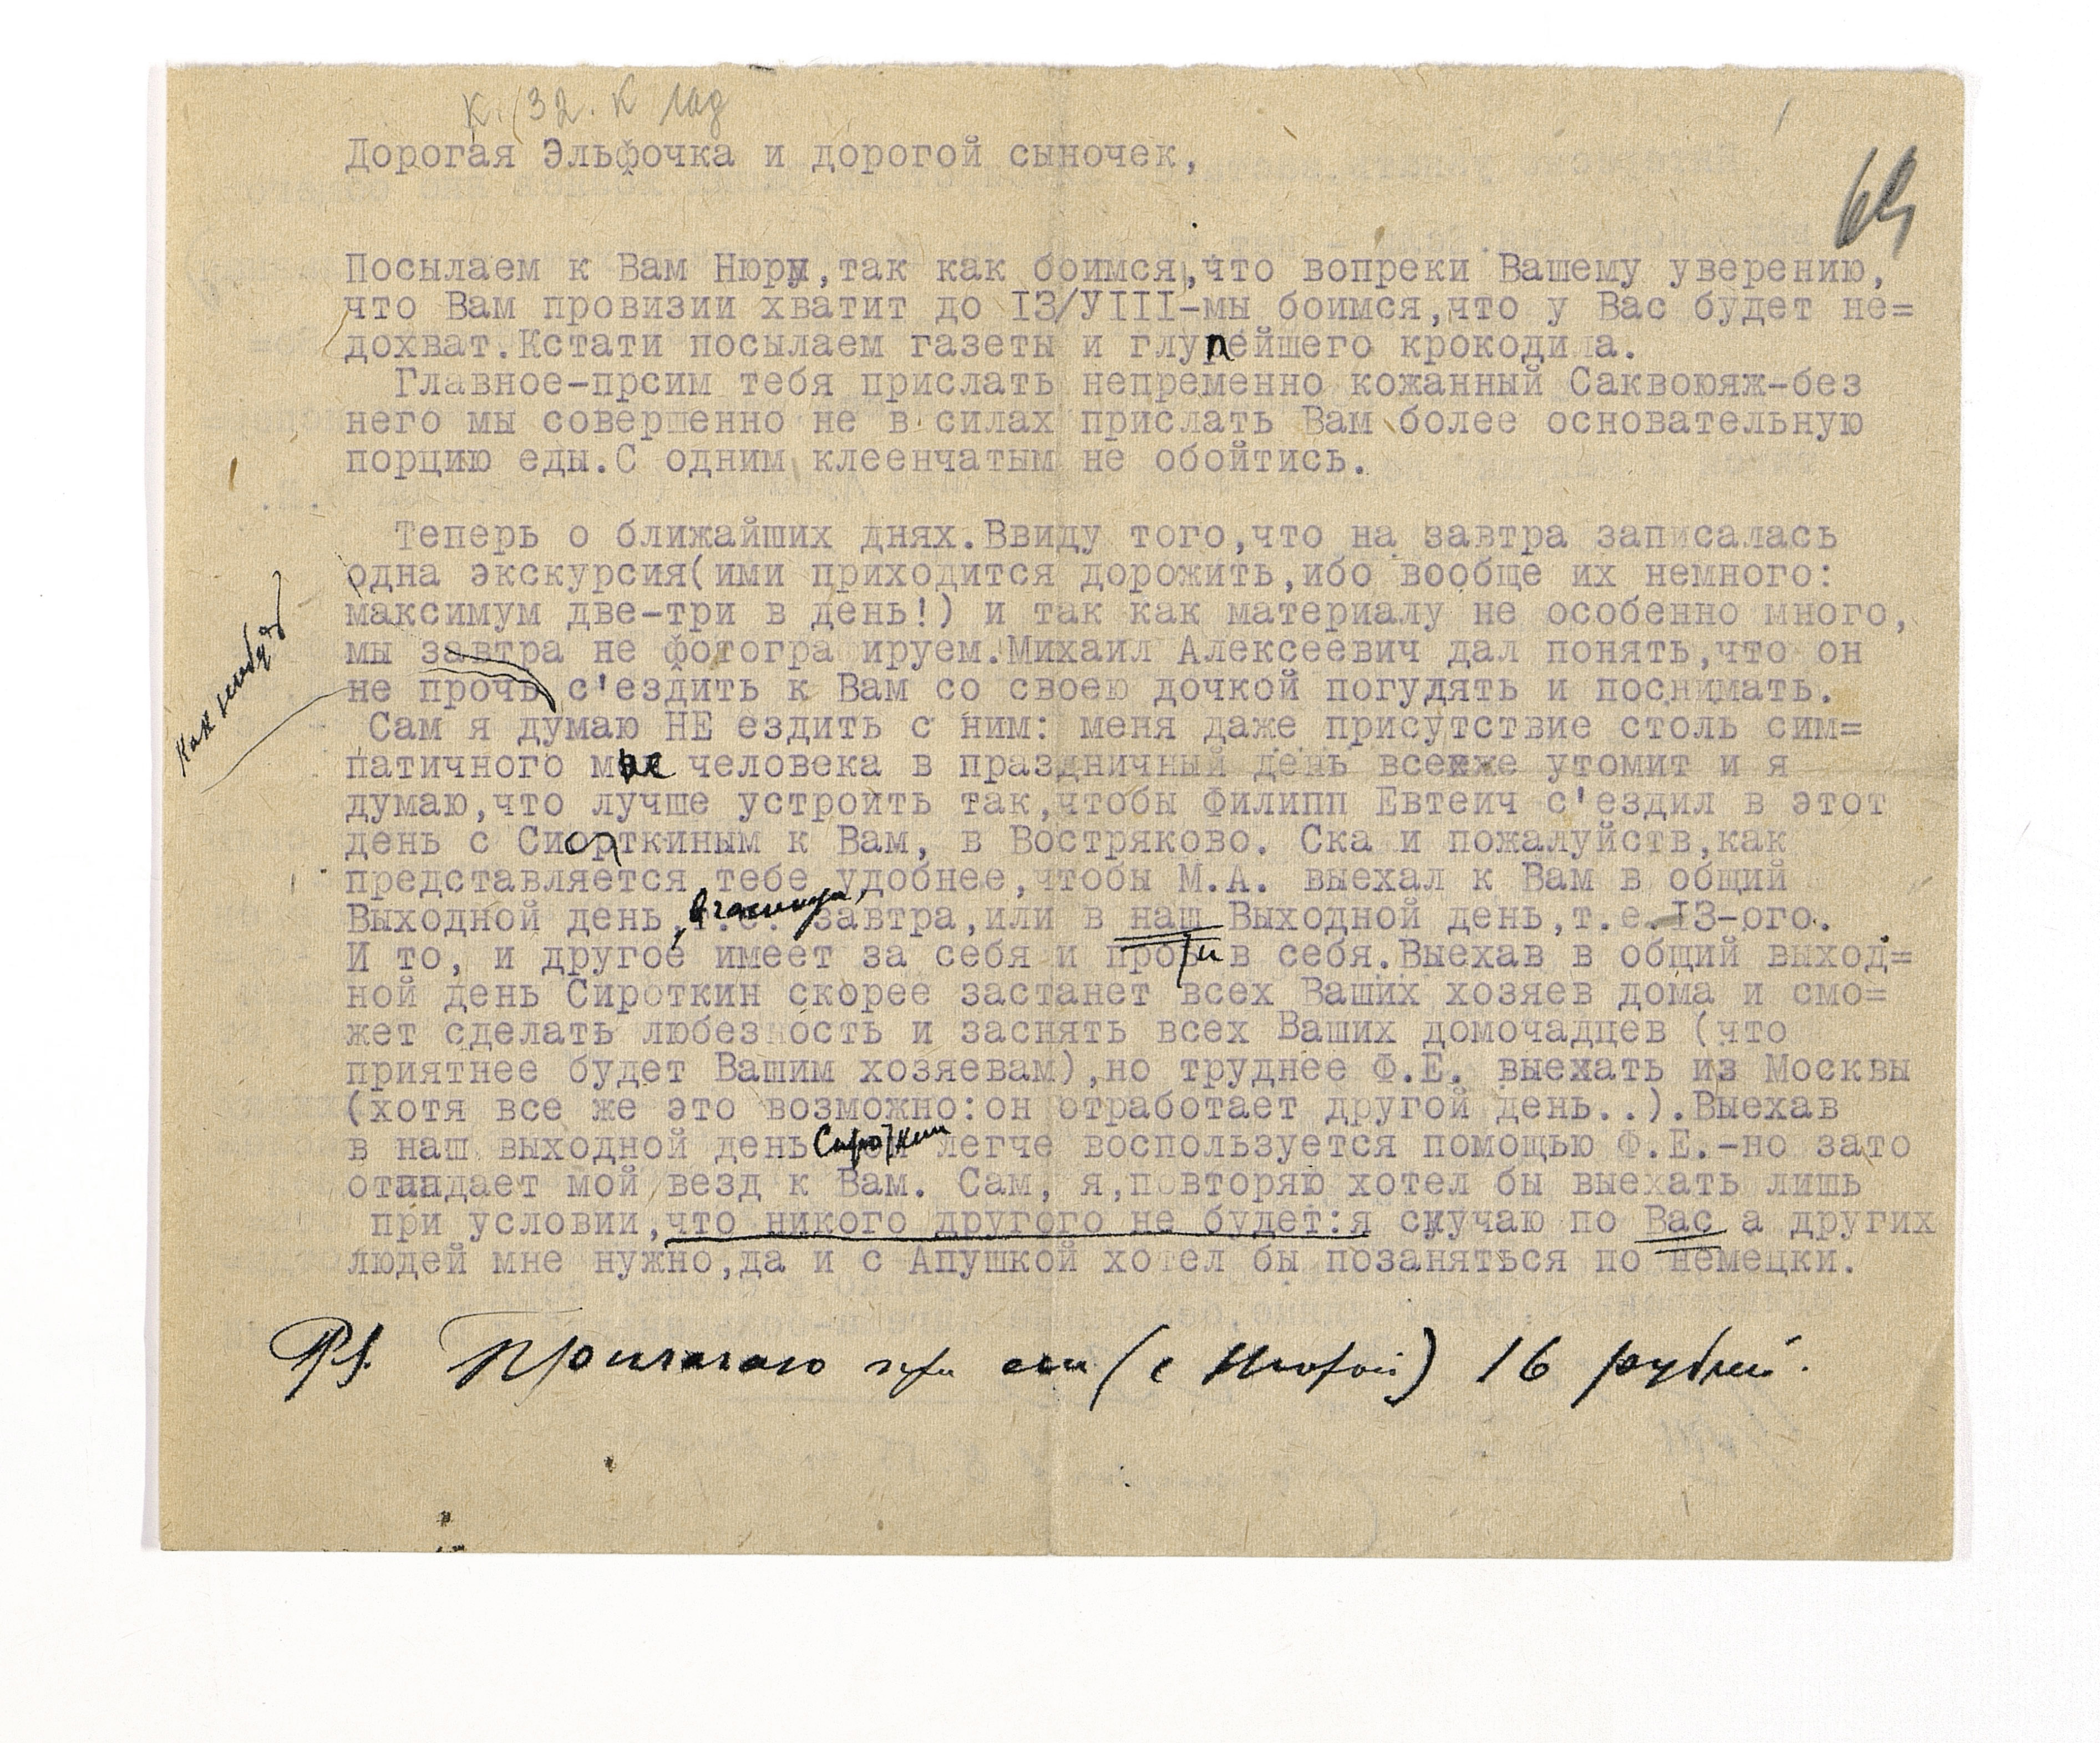 Дорогая Эльфочка и дорогой сыночек,
Посылаем к Вам Нюру,так как боимся,что вопреки Вашему уверению,
что Вам провизии хватит до I3/УIII-мы боимся,что у Вас будет не=
дохват.Кстати посылаем газеты и глупейшего крокодила.
Главное-прсим тебя прислать непременно кожанный Саквоюяж-без
него мы совершенно не в силах прислать Вам более основательную
порцию еды.С одним клеенчатым не обойтись.
Теперь о ближайших днях.Ввиду того,что на завтра записалась
одна экскурсия(ими приходится дорожить,ибо вообще их немного:
максимум две-три в день!) и так как материалу не особенно много,
мы завтра не фотогра ируем.Михаил Алексеевич дал понять,что он
как нибудь
не прочь с'ездить к Вам со своею дочкой погудять и поснимать.
Сам я думаю НЕ ездить с ним: меня даже присутствие столь сим=
патичного мне человека в праздничный день всеже утомит и я
думаю,что лучше устроить так,чтобы Филипп Евтеич с'ездил в этот
день с Сиорткиным к Вам, в Востряково. Ска и пожалуйств,как
представляется тебе удобнее,чтобы М.А. выехал к Вам в общий
Выходной день, т.е. завтра,или в наш Выходной день,т.е.I3-ого.
И то, и другое имеет за себя и против себя.Выехав в общий выход=
ной день Сироткин скорее застанет всех Ваших хозяев дома и смо=
жет сделать любезность и заснять всех Ваших домочадцев (что
приятнее будет Вашим хозяевам),но труднее Ф.Е. выехать из Москвы
(хотя все же это возможно:он отработает другой день..).Выехав
в наш выходной день Сироткин легче воспользуется помощью Ф.Е.-но зато
отпадает мой везд к Вам. Сам, я,повторяю хотел бы выехать лишь
при условии,что никого другого не будет:я скучаю по Вас а других
людей мне нужно,да и с Апушкой хотел бы позаняться по немецки.
P.S. Прилагаю при сем (с Нюрой) 16 рублей.